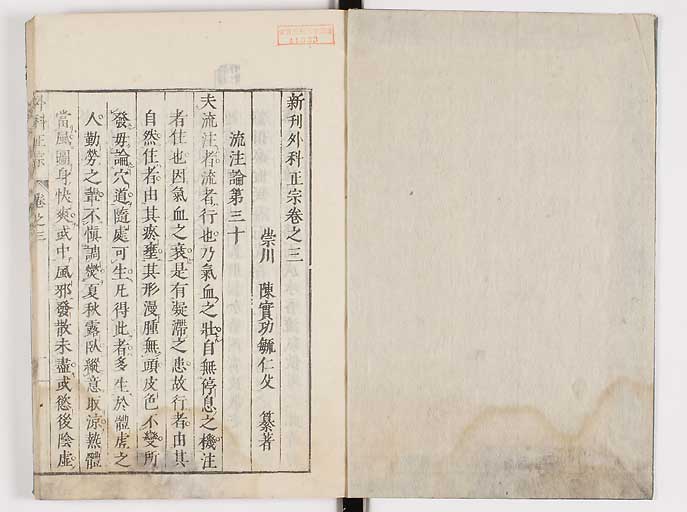 新刊外科正宗卷之三
崇川　陳實功毓仁父　纂著
流注論第三十
夫流注者流者行也乃氣血之壯自無停息之機注
者住也因氣血之衰是有凝滯之患故行者由其
自然住者由其瘀壅其形漫腫無頭皮色不變所
發毋論穴道隨處可生凡得此者多生於體虛之
人勤勞之輩不慎調爕夏秋露臥縱意取涼熱體
當風圖身快爽或中風邪發散未盡或慾後陰虛
外科正宗　卷之三　一
41033